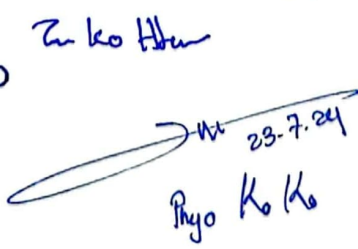 Ko Htun
23-7.24
Phyo Ko Ko